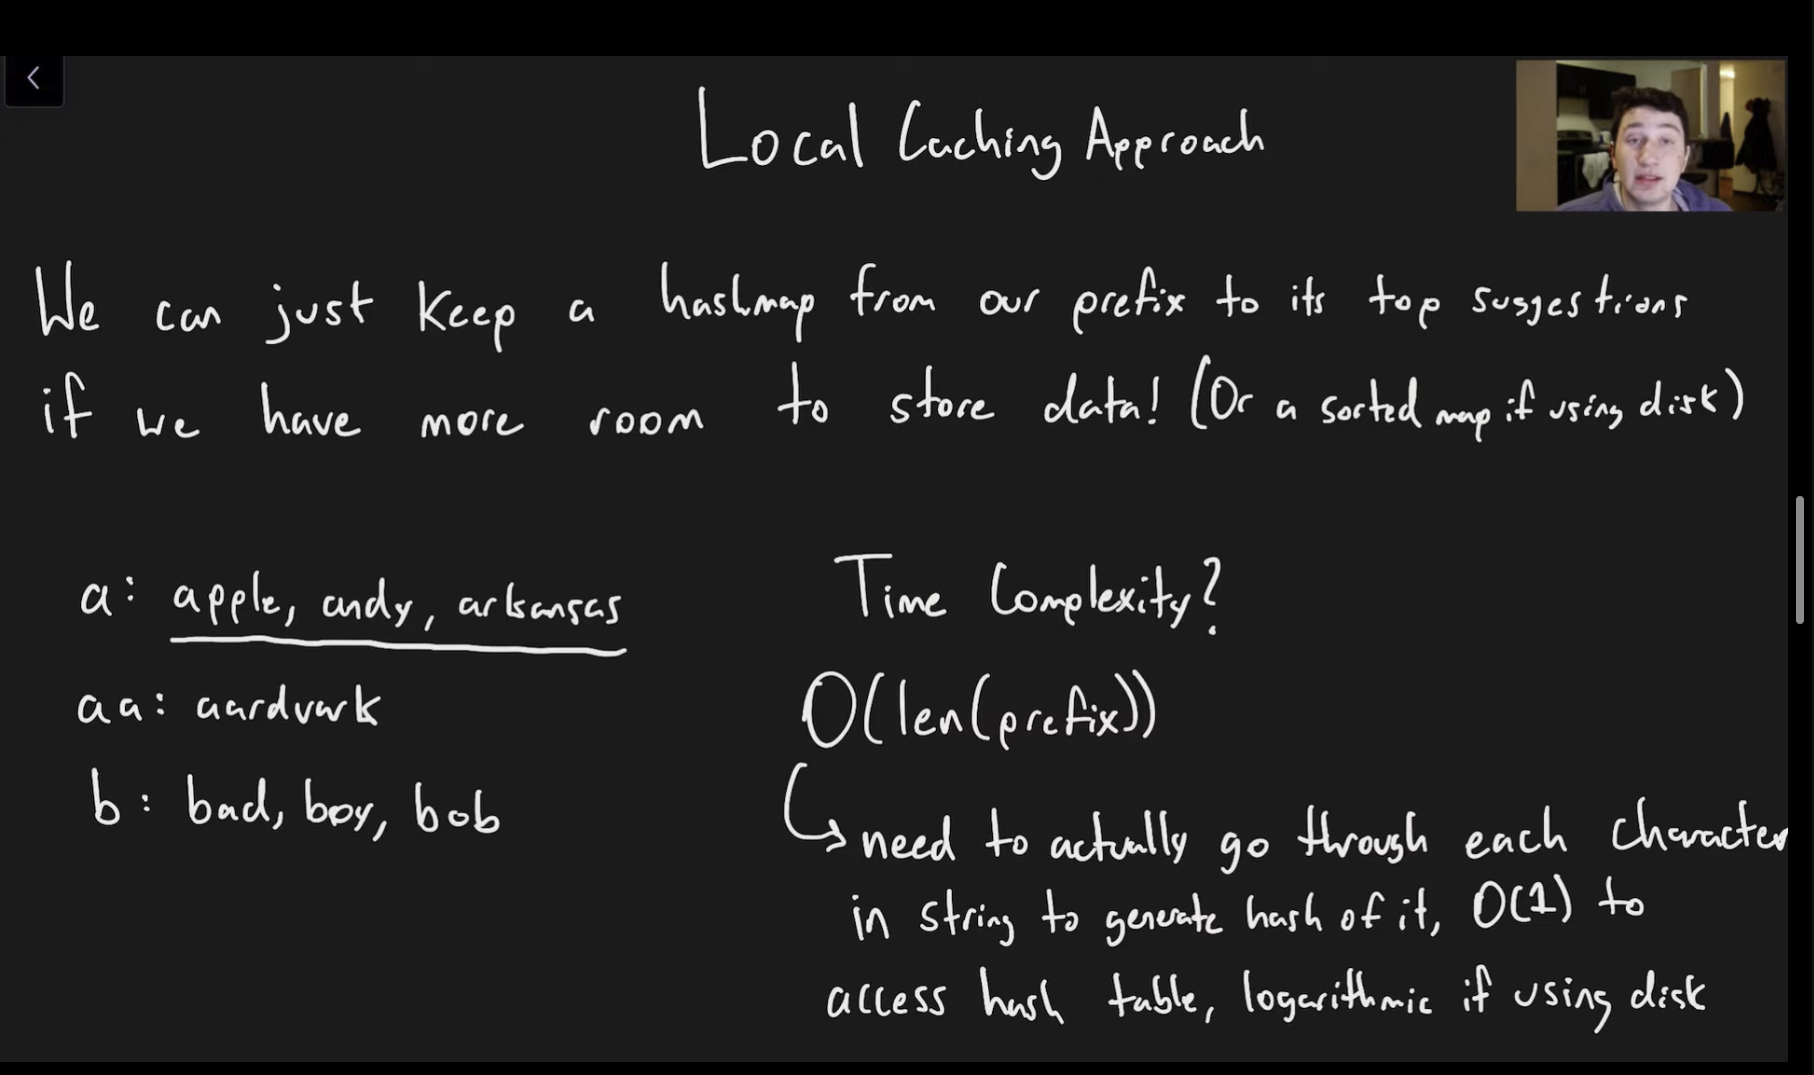 Local Caching Approach
We can just keep a hashmap from our prefix to its top suggestions
if we have more room to store data! (Or a sorted map if using disk)
a: apple, andy, arkansas
aa: aardvark
b: bad, boy, bob
Time Complexity?
O(len(prefix))
need to actually go through each character
in string to generate hash of it, O(1) to
access hash table, logarithmic if using disk